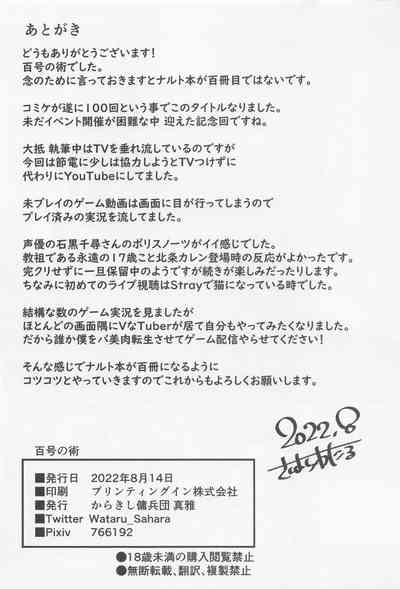 あとがき
どうもありがとうございます!
百号の術でした。
念のために言っておきますとナルト本が百冊目ではないです。
コミケが遂に100回という事でこのタイトルなりました。
未だイベント開催が困難な中 迎えた記念回ですね。
大抵 執筆中はTVを垂れ流しているのですが
今回は節電に少しは協力しようとTVつけずに
代わりにYouTubeにしてました。
未プレイのゲーム動画は画面に目が行ってしまうので
プレイ済みの実況を流してました。
声優の石黒千尋さんのポリスノーツがイイ感じでした。
教祖である永遠の17歳こと北条カレン登場時の反応がよかったです。
完クリせずに一旦保留中のようですが続きが楽しみだったりします。
ちなみに初めてのライブ視聴はStrayで猫になっている時でした。
結構な数のゲーム実況を見ましたが
ほとんどの画面隅にVなTuberが居て自分もやってみたくなりました。
だから誰か僕をバ美肉転生させてゲーム配信やらせてください!
そんな感じでナルト本が百冊になるように
コツコツとやっていきますのでこれからもよろしくお願いします。
2022.8
さはらわたる
百号の術
■発行日 2022年8月14日
■印刷 プリンティングイン株式会社
■発行 からきし傭兵団 真雅
■Twitter Wataru_Sahara
■Pixiv 766192
●18歳未満の購入閲覧禁止
●無断転載、翻訳、複製禁止